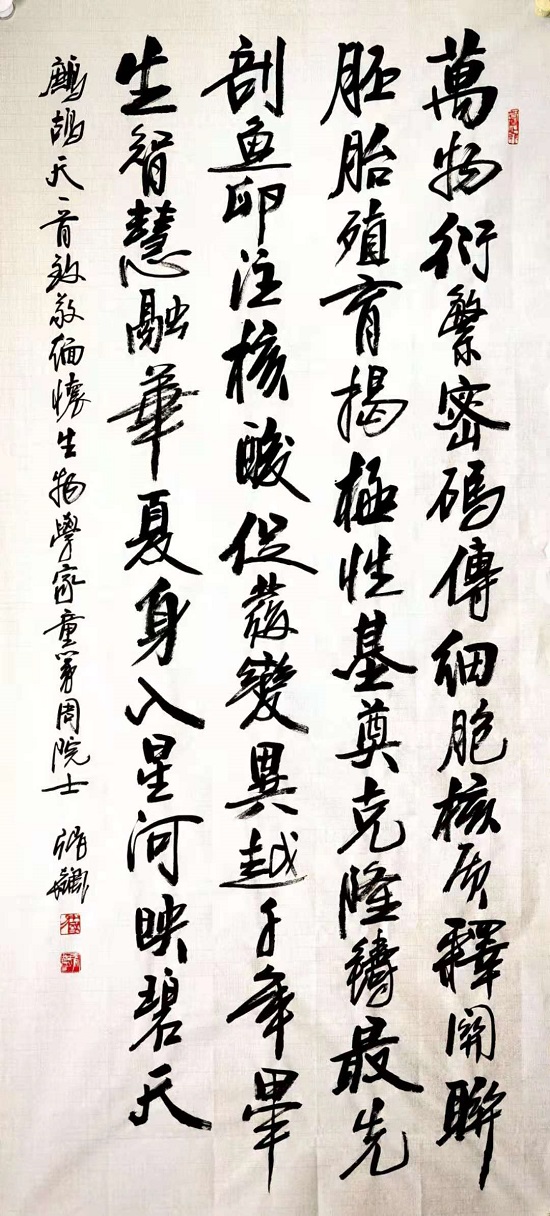 萬物衍繁密碼傳細胞核质釋関聯
胚胎殖育揭極性基奠克隆鑄最先
剖鱼卵注核酸促發變異越千年畢
生智慧融華夏身入星河映碧天
鷓鴣天一首致敬缅懷生物學家童第周院士